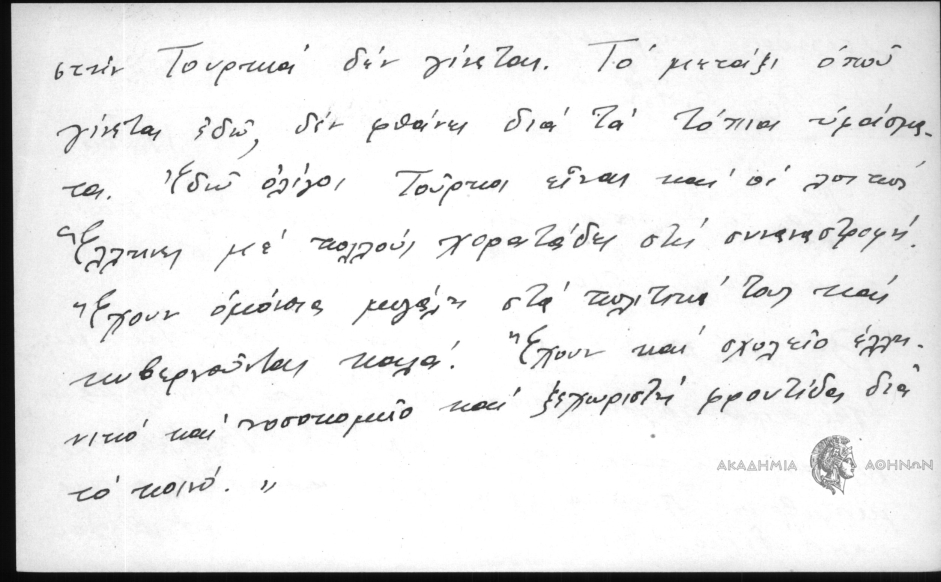 στήν Τουρκιά δέν γίνεται. Τό μετάξι ὁποῦ
γίνεται ἐδῶ, δέν φθάνει διά τά τόπια ὑφάσμα-
τα. Ἐδῶ ὀλίγοι Τοῦρκοι εἶναι καί οἱ λοιποί
Ἕλληνες μέ πολλούς χορατάδες στή συναναστροφή.
Ἔχουν ὁμόνοια μεγάλη στά πολιτικά τους καί
κυβερνοῦνται καλά. Ἔχουν καί σχολεῖο ἑλλη-
νικό καί νοσοκομεῖο καί ξεχωριστή φροντίδα διά
τό κοινό. "
ΑΚΑΔΗΜΙΑ ΑΘΗΝΩΝ